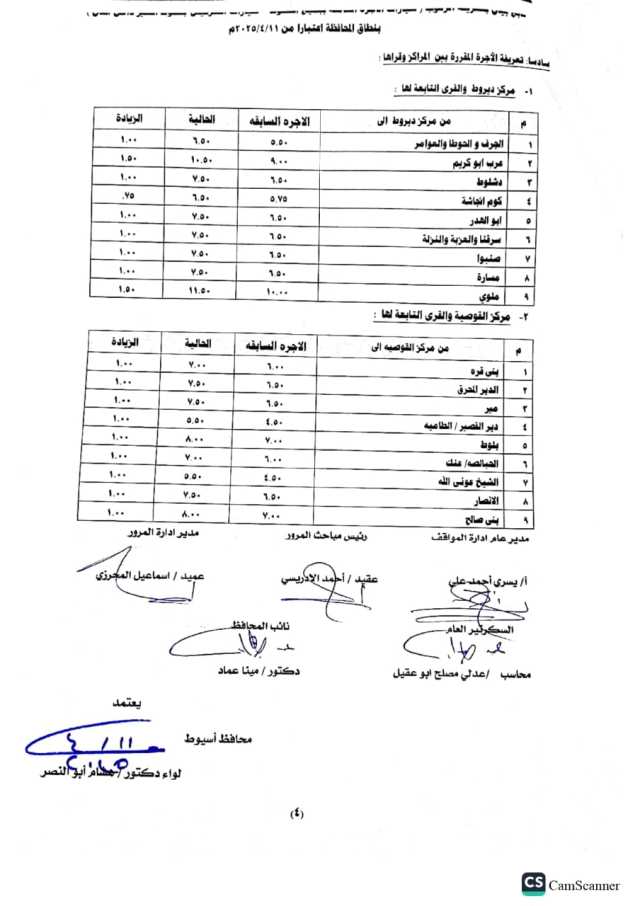 بنطاق المحافظة اعتبارا من ٢٠٢٥/٤/١١م
سادسا: تعريفة الأجرة المقررة بين المراكز وقراها :
١- مركز ديروط والقرى التابعة لها :
م من مركز ديروط الى الاجره السابقه الحالية الزيادة
١ الجرف و الحوطا والعوامر ٥.٥٠ ٦.٥٠ ١.٠٠
٢ عرب ابو كريم ٩.٠٠ ١٠.٥٠ ١.٥٠
٣ دشلوط ٦.٥٠ ٧.٥٠ ١.٠٠
٤ كوم انجاشة ٥.٧٥ ٦.٥٠ .٧٥
٥ ابو الهدر ٦.٥٠ ٧.٥٠ ١.٠٠
٦ سرقنا والعزبة والنزلة ٦.٥٠ ٧.٥٠ ١.٠٠
٧ صنبوا ٦.٥٠ ٧.٥٠ ١.٠٠
٨ مسارة ٦.٥٠ ٧.٥٠ ١.٠٠
٩ ملوي ١٠.٠٠ ١١.٥٠ ١.٥٠
٢- مركز القوصية والقرى التابعة لها :
م من مركز القوصيه الى الاجره السابقه الحالية الزيادة
١ بنى قره ٦.٠٠ ٧.٠٠ ١.٠٠
٢ الدير المحرق ٦.٥٠ ٧.٥٠ ١.٠٠
٣ مير ٦.٥٠ ٧.٥٠ ١.٠٠
٤ دير القصير / الطاميه ٤.٥٠ ٥.٥٠ ١.٠٠
٥ بلوط ٧.٠٠ ٨.٠٠ ١.٠٠
٦ الحبالصه/ عنك ٦.٠٠ ٧.٠٠ ١.٠٠
٧ الشيخ عونى الله ٤.٥٠ ٥.٥٠ ١.٠٠
٨ الانصار ٦.٥٠ ٧.٥٠ ١.٠٠
٩ بنى صالح ٧.٠٠ ٨.٠٠ ١.٠٠
مدير عام ادارة المواقف رئيس مباحث المرور مدير ادارة المرور
أ/ يسري أحمد علي عقيد / أحمد الادريسي عميد / اسماعيل المحرزي
السكرتير العام نائب المحافظ
محاسب /عدلي مصلح ابو عقيل دكتور / مينا عماد
يعتمد
محافظ أسيوط
لواء دكتور/ هشام أبو النصر
(٤)
CS CamScanner